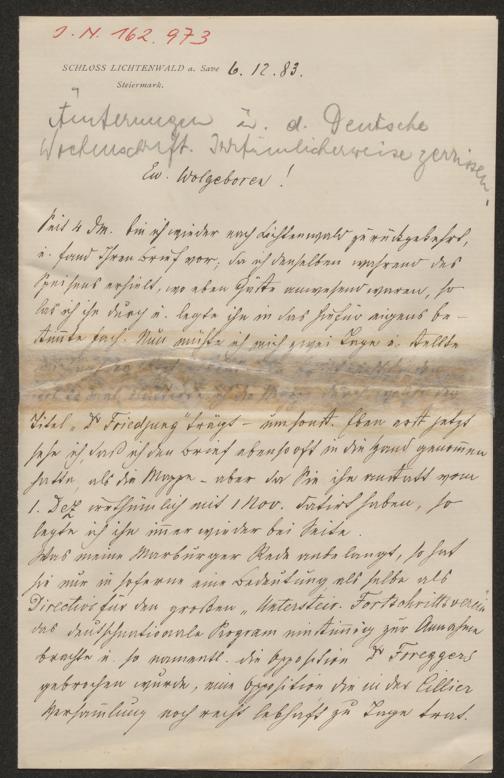 J. N. 162.973
SCHLOSS LICHTENWALD a. Save 6.12.83.
Steiermark.
Äußerungen ü. d. Deutsche
Wochenschrift. Irrtümlicherweise zerrissen.
Ew. Wolgeboren!
Seit 4 dM. bin ich wieder nach Lichtenwald zurückgekehrt,
u. fand Ihren Brief vor; da ich denselben während des
Speisens erhielt, wo eben Gäste anwesend waren, so
las ich ihn durch u. legte ihn in das hiefür eigens be-
stimmte Fach. Nun mühte ich mich zwei Tage u. stellte
Titel „Dr Friedjung" trägt – umsonst. Eben erst jetzt
sehe ich, daß ich den Brief ebensooft in die Hand genommen
hatte, als die Mappe – aber da Sie ihn anstatt vom
1. Dez irrthümlich mit 1 Nov. datirt haben, so
legte ich ihn immer wieder bei Seite.
Was meine Marburger Rede anbelangt, so hat
sie nur in soferne eine Bedeutung als selbe als
Directive für den großen „Untersteir. Fortschrittsverein
das deutschnationale Program einstimmig zur Annahme
brachte u. so namentl. die Opposition Dr Foreggers
gebrochen wurde, eine Opposition die in der Cillier
Versammlung noch recht lebhaft zu Tage trat.